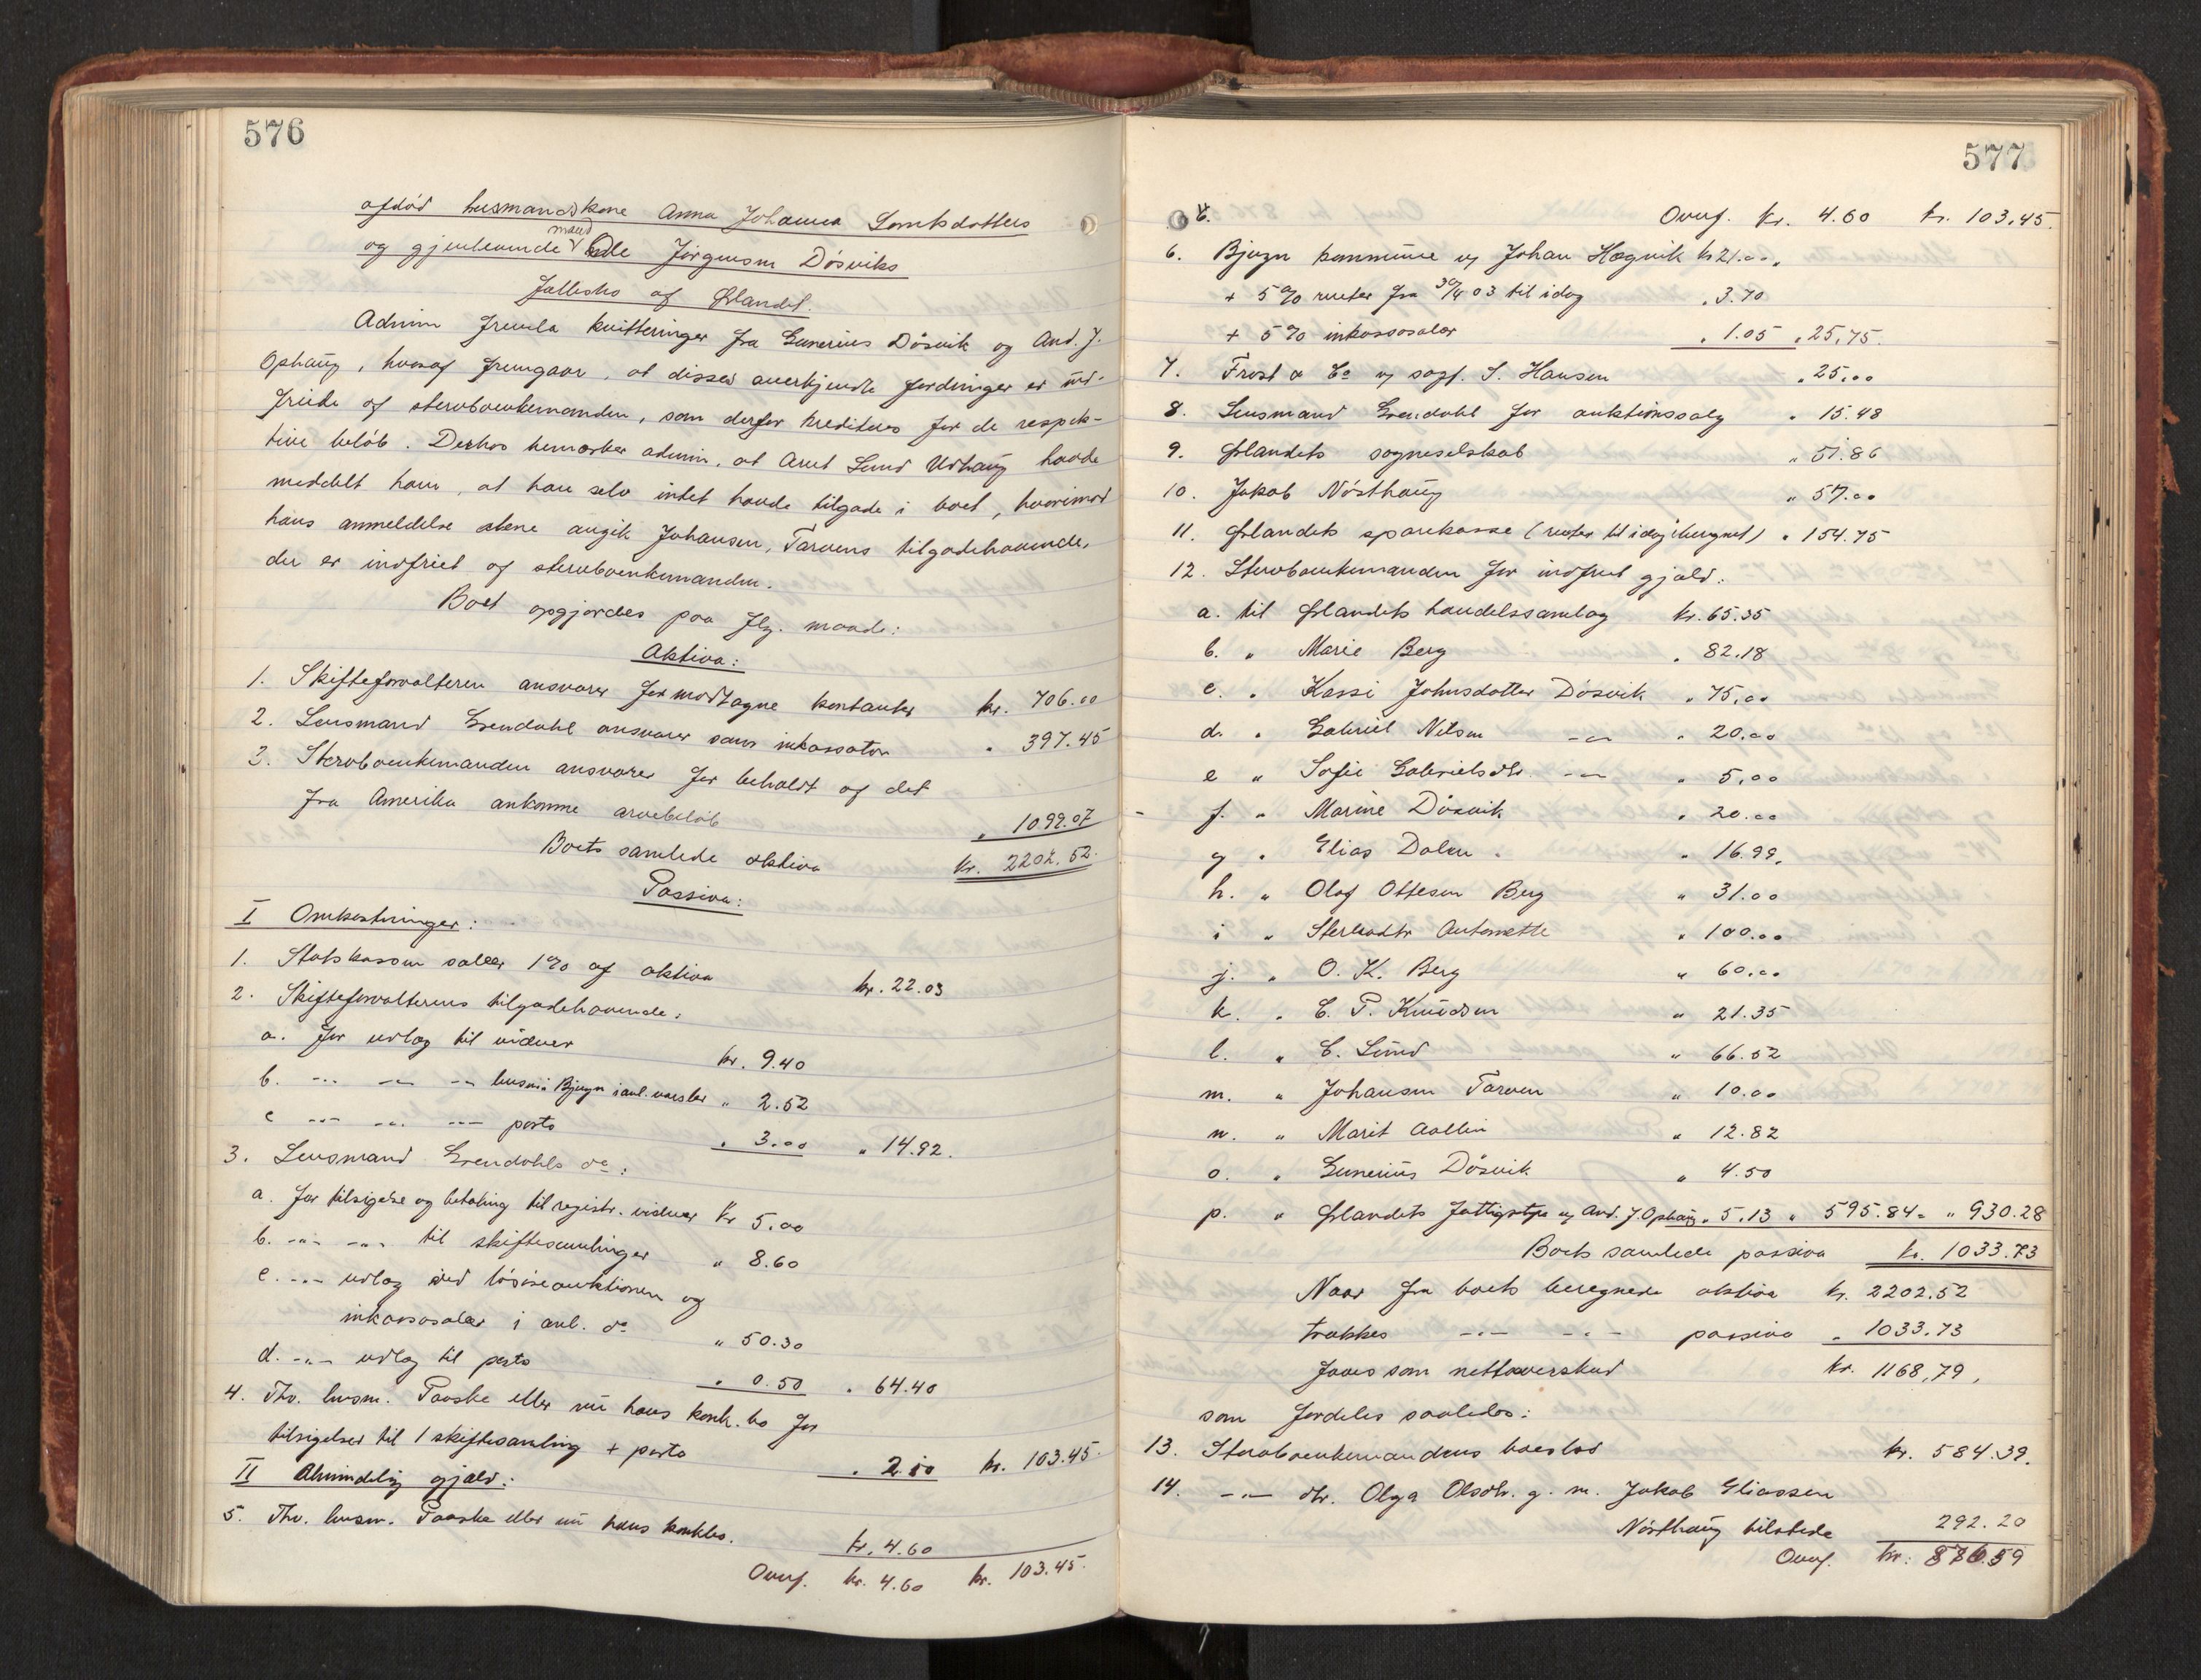 576
afdød husmandskone Anna Johanna Larsdatters
og gjenlevende mand Ole Jörgensen Dösviks
Fællesbo af Ørlandet.
Admin fremla kvitteringer fra Gunerius Dösvik og And. J.
Ophaug, hvoraf fremgaar, at disses anerkjendte fordringer er ind-
friede af stervboenkemanden, som derfor krediteres for de respek-
tive beløb. Derhos bemærker admin, at Arnt Lund Udhaug havde
meddelt ham, at han selv intet havde tilgode i boet, hvorimod
hans anmeldelse alene angik Johansen, Tarvens tilgodehavende,
der er indfriet af stervboenkemanden.
Boet opgjordes paa flg. maade:
Aktiva:
1. Skifteforvalteren ansvarer for modtagne kontanter kr. 706.00
2. Lensmand Grendahl ansvarer som inkassator " 397.45
3. Stervboenkemanden ansvarer for beholdt af det
fra Amerika ankomne arvebeløb " 1099.07
Boets samlede aktiva kr. 2202.52.
Passiva:
I Omkostninger:
1. Statskassen salær 1% af aktiva kr. 22.03
2. Skifteforvalterens tilgodehavende:
a. for udlæg til vidner kr. 9.40
b. -"- -"- -"- lensm. i Bjugn i anl. varsler " 2.52
c -"- -"- -"- porto " 3.00 " 14.92.
3. Lensmand Grendahls do:
a. for tilsigelse og betaling til registr. vidner kr 5.00
b. -"- -"- til skiftesamlinger " 8.60
c. -"- udlæg ved løsøreauktionen og
inkassosalær i anl. do " 50.30
d. -"- udlæg til porto " 0.50 " 64.40
4. Thv. lensm. Paaske eller nu hans konk. bo for
tilsigelser til 1 skiftesamling + porto " 2.10 kr. 103.45.
II Almindelig gjæld:
5. Thv. lensm. Paaske eller nu hans konkbo. kr. 4.60
Overf. kr. 4.60 kr. 103.45.
577
Overf. kr. 4.60 kr. 103.45.
6. Bjugn kommune v/ Johan Høgvik kr 21.00,
+ 5% renter fra 30/4 03 til idag " 3.70
+ 5% inkassosalær " 1.05 " 25,75.
7. Frost & Co v/ sagf. S. Hansen " 25.00
8. Lensmand Grendahl for auktionssalg " 15.48
9. Ørlandets sogneselskab " 51.86
10. Jakob Nösthaug " 57.00
11. Ørlandets sparekasse (renter til idag iberegnet) " 154.75
12. Stervboenkemanden for indfriet gjæld:
a. til Ørlandets handelssamlag kr. 65.35
b. " Marie Berg " 82.18
c. " Kassi Johnsdatter Dösvik " 75,00
d. " Gabriel Nilsen -"- " 20.00
e " Sofie Gabrielsdtr. -"- " 5,00
f. " Marine Dösvik " 20.00
g " Elias Dalen " 16.99.
h. " Olaf Ottesen Berg " 31.00
i " Antonette " 100.00
j. " O. K. Berg " 60.00
k. " C. P. Knudsen " 21.35
l. " C. Lund " 66.52
m. " Johansen Tarven " 10.00
n. " Marit Aallin " 12.82
o. " Gunerius Dösvik " 4.50
p. " Ørlandets v/ And. J. Ophaug " 5.13 " 595.84 = " 930.28
Boets samlede passiva kr. 1033.73
Naar fra boets beregnede aktiva kr. 2202.52
trækkes -"- -"- passiva " 1033.73
faaes som nettooverskud kr. 1168,79,
som fordeles saaledes:
13. Stervboenkemandens boeslod kr. 584.39.
14. -"- dtr. Olga Olsdtr. g. m. Jakob Eliassen
Nösthaug tilstede 292.20
Overf. kr. 876.59